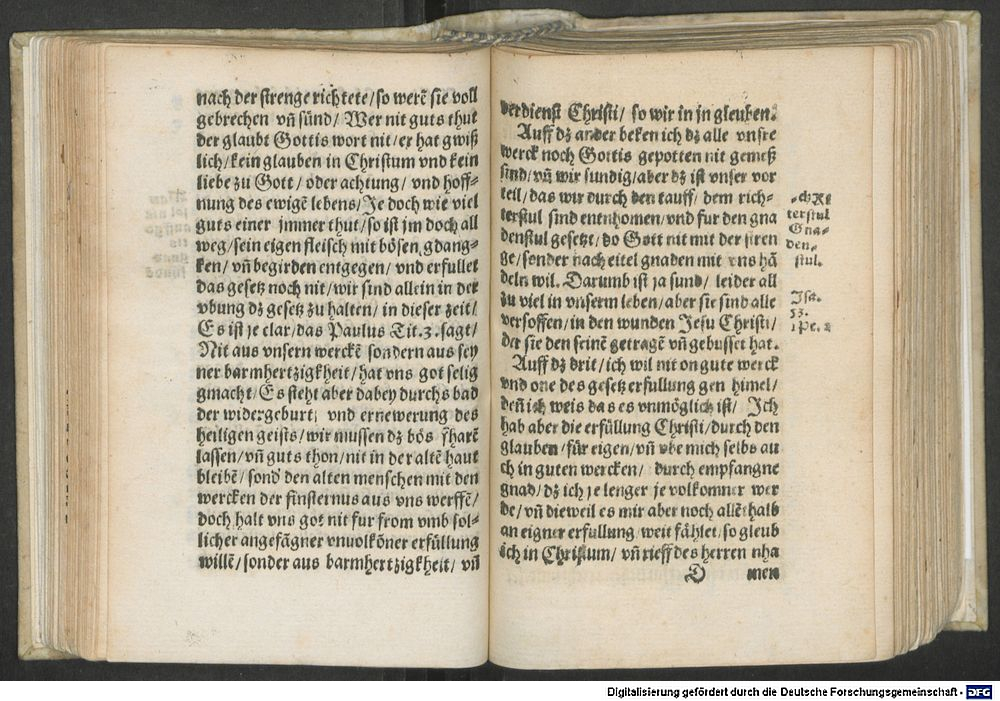 nach der strenge richtete/so werẽ sie voll
gebrechen vñ sünd/ Wer nit guts thut
der glaubt Gottis wort nit/er hat gwiß
lich/kein glauben in Christum vnd kein
liebe zu Gott/ oder achtung/ vnd hoff-
nung des ewigẽ lebens/Je doch wie viel
guts einer jmmer thut/so ist jm doch all
weg/sein eigen fleisch mit bösen gdang-
ken/vñ begirden entgegen/ vnd erfullet
das gesetz noch nit/wir sind allein in der
vbung dz gesetz zu halten/in dieser zeit/
Es ist je clar/das Paulus Tit.3.sagt/
Nit aus vnsern werckẽ sondern aus sey
ner barmhertzigkheit/hat vns got selig
gmacht/Es steht aber dabey durchs bad
der widergeburt/ vnd ernewerung des
heiligen geists/wir mussen dz bös fharẽ
lassen/vñ guts thon/nit in der altẽ haut
bleibẽ/sond' den alten menschen mit den
wercken der finsternus aus vns werffẽ/
doch halt vns got nit fur from vmb sol-
licher angefãgner vnuolkõner erfüllung
willẽ/sonder aus barmhertzigkheit/ vñ
verdienst Christi/ so wir in jn gleuben.
Auff dz ander beken ich dz alle vnsre
werck noch Gottis gepotten nit gemeß
sind/vñ wir sundig/aber dz ist vnser vor
teil/das wir durch den tauff/ dem rich-
terstul sind entnhomen/vnd fur den gna
denstul gesetzt/do Gott nit mit der stren
ge/sonder nach eitel gnaden mit vns hã
deln wil. Darumb ist ja sund/ leider all
zu viel in vnserm leben/aber sie sind alle
versoffen/in den wunden Jesu Christi/
der sie den seinẽ getragẽ vñ gebusset hat.
Auff dz drit/ich wil nit on gute werck
vnd one des gesetz erfullung gen himel/
deñ ich weis das es vnmöglich ist/ Ich
hab aber die erfüllung Christi/durch den
glauben/für eigen/vñ vbe mich selbs au
ch in guten wercken/ durch empfangne
gnad/dz ich je lenger je volkomner wer
de/vñ dieweil es mir aber noch allẽthalb
an eigner erfullung weit fählet/so gleub
ich in Christum/ vñ rieff des herren nha
D men
terstul
Gna-
den-
stul.
Isa.
53.
1 Pe. 2
Digitalisierung gefördert durch die Deutsche Forschungsgemeinschaft - DFG